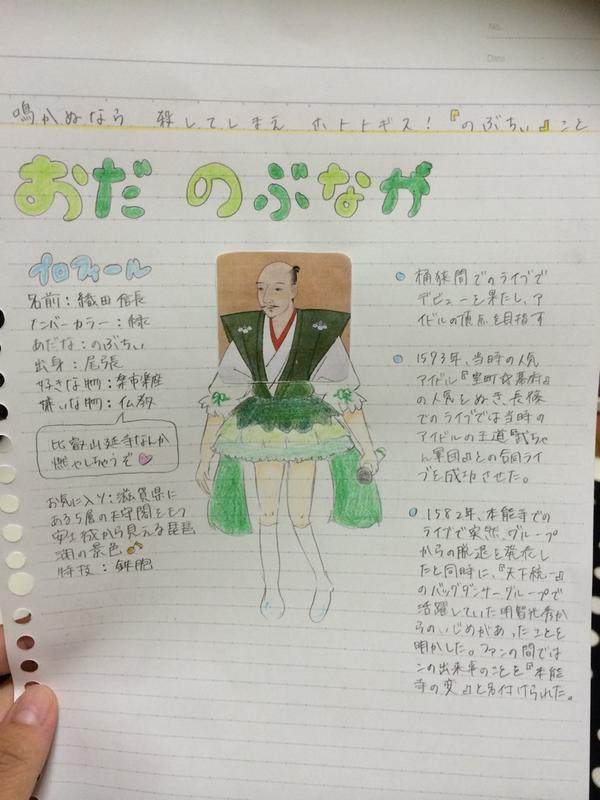 No.
Date
鳴かぬなら 殺してしまえ ホトトギス！『のぶちぃ』こと
おだ のぶなが
プロフィール
名前：織田信長
メンバーカラー：緑
あだな：のぶちぃ
出身：尾張
好きな物：楽市楽座
嫌いな物：仏教
比叡山延暦寺なんか
燃やしちゃうぞ♡
お気に入り：滋賀県に
ある5層の天守閣をもつ
安土城から見える琵琶
湖の景色
特技：鉄砲
桶狭間でのライブで
デビューを果たし、ア
イドルの頂点を目指す
1573年、当時の人気
アイドル『室町☆幕府』
の人気をぬき、長篠
でのライブでは当時の
アイドルの王道『武ちゃ
ん軍団』との合同ライ
ブを成功させた。
1582年、本能寺での
ライブで突然、グループ
からの脱退を発表し
たと同時に、『天下統一』
のバッグダンサーグループで
活躍していた明智光秀か
らのいじめがあったことを
明かした。ファンの間では
この出来事のことを『本能
寺の変』と名付けられた。